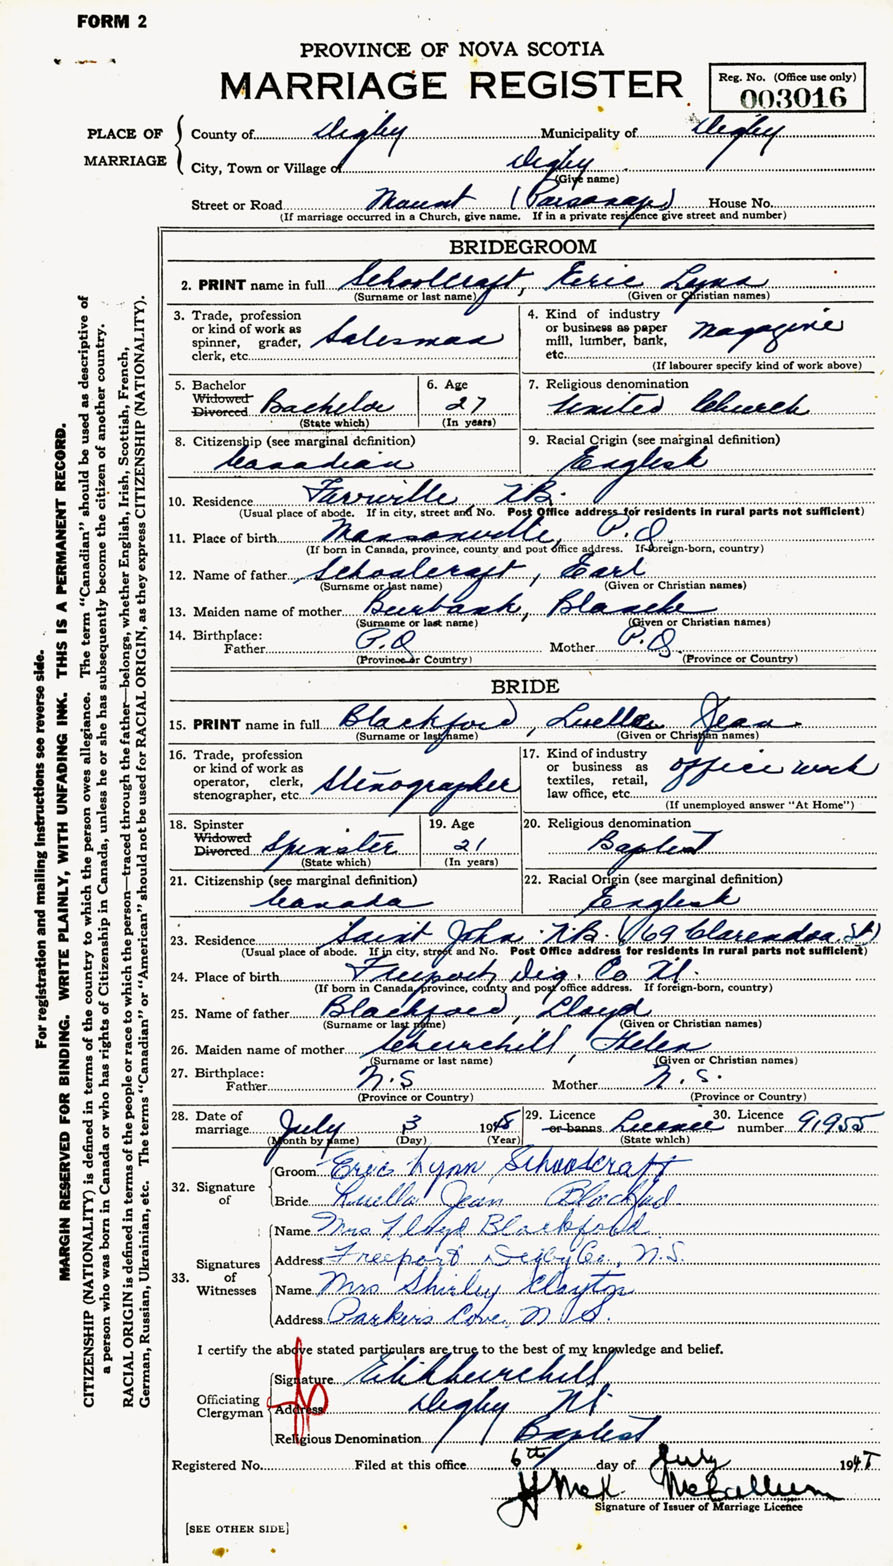 FORM 2
PROVINCE OF NOVA SCOTIA
MARRIAGE REGISTER
Reg. No. (Office use only)
003016
PLACE OF MARRIAGE
County of Digby Municipality of Digby
City, Town or Village of Digby
(Give name)
Street or Road Mount (Parsonage) House No.
(If marriage occurred in a Church, give name. If in a private residence give street and number)
BRIDEGROOM
2. PRINT name in full Schoolcraft, Eric Lynn
(Surname or last name) (Given or Christian names)
3. Trade, profession or kind of work as spinner, grader, clerk, etc. Salesman
4. Kind of industry or business as paper mill, lumber, bank, etc. Magazine
(If labourer specify kind of work above)
5. Bachelor Widowed Divorced Bachelor
(State which)
6. Age 27
(In years)
7. Religious denomination United Church
8. Citizenship (see marginal definition) Canadian
9. Racial Origin (see marginal definition) English
10. Residence Fairville, N.B.
(Usual place of abode. If in city, street and No. Post Office address for residents in rural parts not sufficient)
11. Place of birth Mansonville, P.Q.
(If born in Canada, province, county and post office address. If foreign-born, country)
12. Name of father Schoolcraft, Earl
(Surname or last name) (Given or Christian names)
13. Maiden name of mother Burbank, Blanche
(Surname or last name) (Given or Christian names)
14. Birthplace:
Father P.Q. Mother P.Q.
(Province or Country) (Province or Country)
BRIDE
15. PRINT name in full Blackford, Luella Jean
(Surname or last name) (Given or Christian names)
16. Trade, profession or kind of work as operator, clerk, stenographer, etc. Stenographer
17. Kind of industry or business as textiles, retail, law office, etc. office work
(If unemployed answer "At Home")
18. Spinster Widowed Divorced Spinster
(State which)
19. Age 21
(In years)
20. Religious denomination Baptist
21. Citizenship (see marginal definition) Canada
22. Racial Origin (see marginal definition) English
23. Residence Saint John N.B. (69 Clarendon St)
(Usual place of abode. If in city, street and No. Post Office address for residents in rural parts not sufficient)
24. Place of birth Freeport Dig. Co.
(If born in Canada, province, county and post office address. If foreign-born, country)
25. Name of father Blackford, Lloyd
(Surname or last name) (Given or Christian names)
26. Maiden name of mother Churchill, Helen
(Surname or last name) (Given or Christian names)
27. Birthplace:
Father N.S Mother N.S.
(Province or Country) (Province or Country)
28. Date of marriage July 3 1948
(Month by name) (Day) (Year)
29. Licence or banns Licence
(State which)
30. Licence number 91955
32. Signature of
Groom Eric Lynn Schoolcraft
Bride Luella Jean Blackford
33. Signatures of Witnesses
Name Mrs Lloyd Blackford
Address Freeport Digby Co., N.S.
Name Mrs Shirley Clayton
Address Parkers Cove, N S.
I certify the above stated particulars are true to the best of my knowledge and belief.
Officiating Clergyman
Signature Churchill
Address Digby NS
Religious Denomination Baptist
Registered No. Filed at this office 6th day of July 194
McCallum
Signature of Issuer of Marriage Licence
[SEE OTHER SIDE]
For registration and mailing instructions see reverse side.
MARGIN RESERVED FOR BINDING. WRITE PLAINLY, WITH UNFADING INK. THIS IS A PERMANENT RECORD.
CITIZENSHIP (NATIONALITY) is defined in terms of the country to which the person owes allegiance. The term "Canadian" should be used as descriptive of
a person who was born in Canada or who has rights of Citizenship in Canada, unless he or she has subsequently become the citizen of another country.
RACIAL ORIGIN is defined in terms of the people or race to which the person—traced through the father—belongs, whether English, Irish, Scottish, French,
German, Russian, Ukrainian, etc. The terms "Canadian" or "American" should not be used for RACIAL ORIGIN, as they express CITIZENSHIP (NATIONALITY).